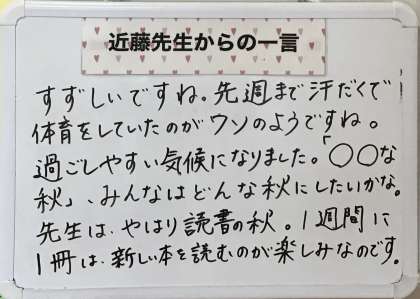 近藤先生からの一言
すずしいですね。先週まで汗だくで
体育をしていたのがウソのようですね。
過ごしやすい気候になりました。「○○な
秋」、みんなはどんな秋にしたいかな。
先生は、やはり読書の秋。1週間に
1冊は、新しい本を読むのが楽しみなのです。